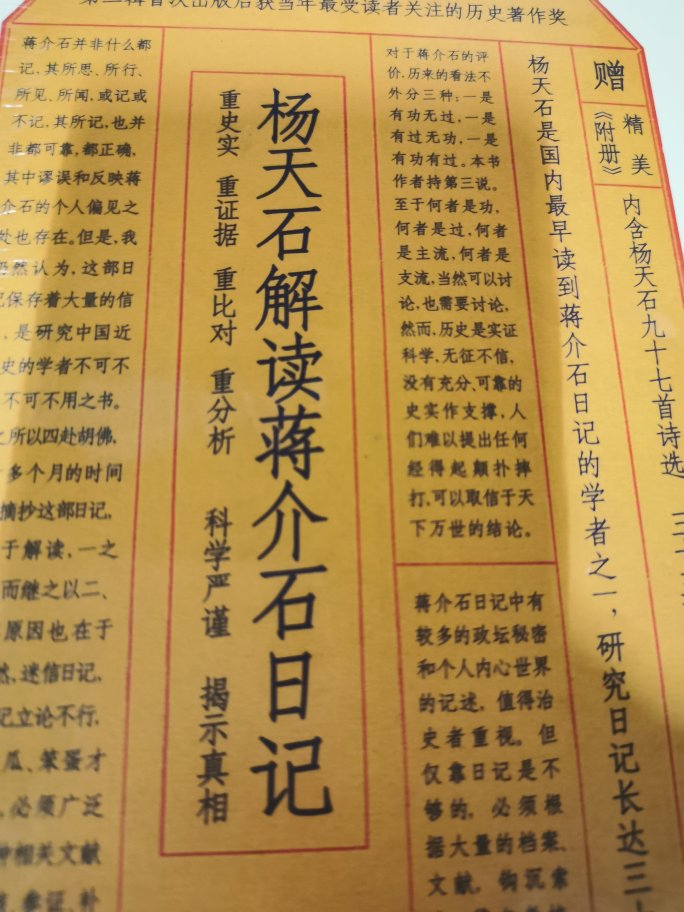 首次出版后获当年最受读者关注的历史著作奖
赠
精美
《附册》
内含杨天石九十七首诗选
杨天石是国内最早读到蒋介石日记的学者之一，研究日记长达三
对于蒋介石的评
价，历来的看法不
外分三种：一是
有功无过，一是
有过无功，一是
有功有过。本书
作者持第三说。
至于何者是功，
何者是过，何者
是主流，何者是
支流，当然可以讨
论，也需要讨论，
然而，历史是实证
科学，无征不信，
没有充分、可靠的
史实作支撑，人
们难以提出任何
经得起颠扑摔
打，可以取信于天
下万世的结论。
蒋介石日记中有
较多的政坛秘密
和个人内心世界
的记述，值得治
史者重视。但
仅靠日记是不
够的，必须根
据大量的档案、
文献，钩沉索
杨天石解读蒋介石日记
重史实 重证据 重比对 重分析 科学严谨 揭示真相
蒋介石并非什么都
记，其所思、所行、
所见、所闻，或记或
不记，其所记，也并
非都可靠，都正确，
其中谬误和反映蒋
介石的个人偏见之
处也存在。但是，我
仍然认为，这部日
记保存着大量的信
，是研究中国近
史的学者不可不
不可不用之书。
之所以四赴胡佛，
多个月的时间
摘抄这部日记，
于解读，一之
而继之以二、
原因也在于
然，迷信日记，
记立论不行，
瓜、笨蛋才
，必须广泛
种相关文献
参证、补